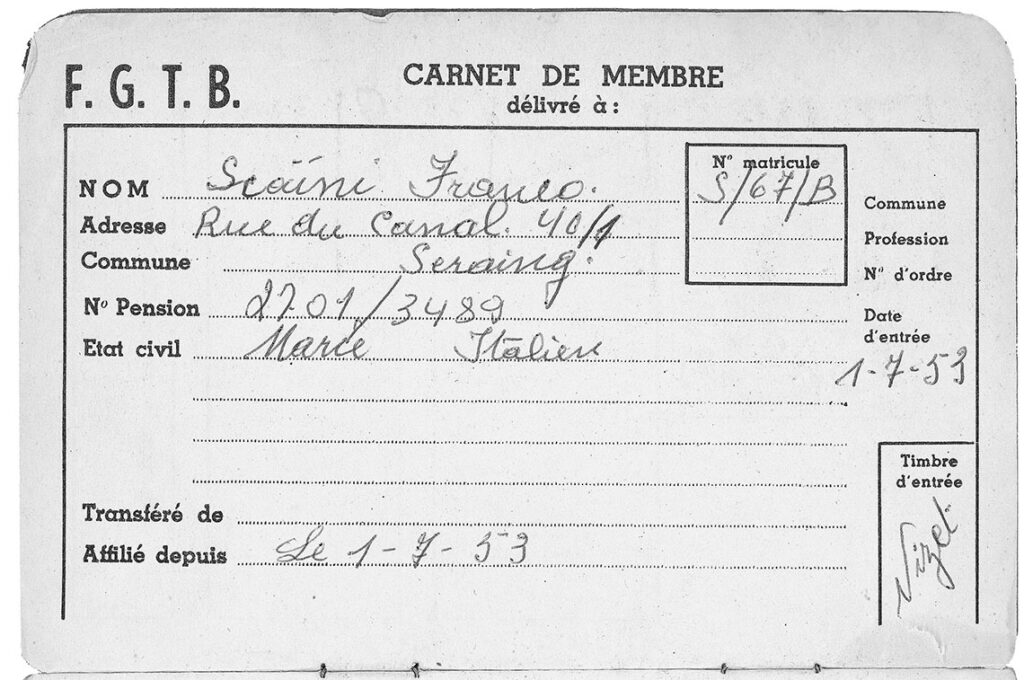 F. G. T. B.
CARNET DE MEMBRE
délivré à :
NOM Scaïni Franco.
Adresse Rue du Canal. 40/1
Commune Seraing.
Nº Pension 2701/3489
Etat civil Marié Italien
Transféré de
Affilié depuis Le 1-7-53
Nº matricule
S/67/B
Commune
Profession
Nº d'ordre
Date
d'entrée
1-7-53
Timbre
d'entrée